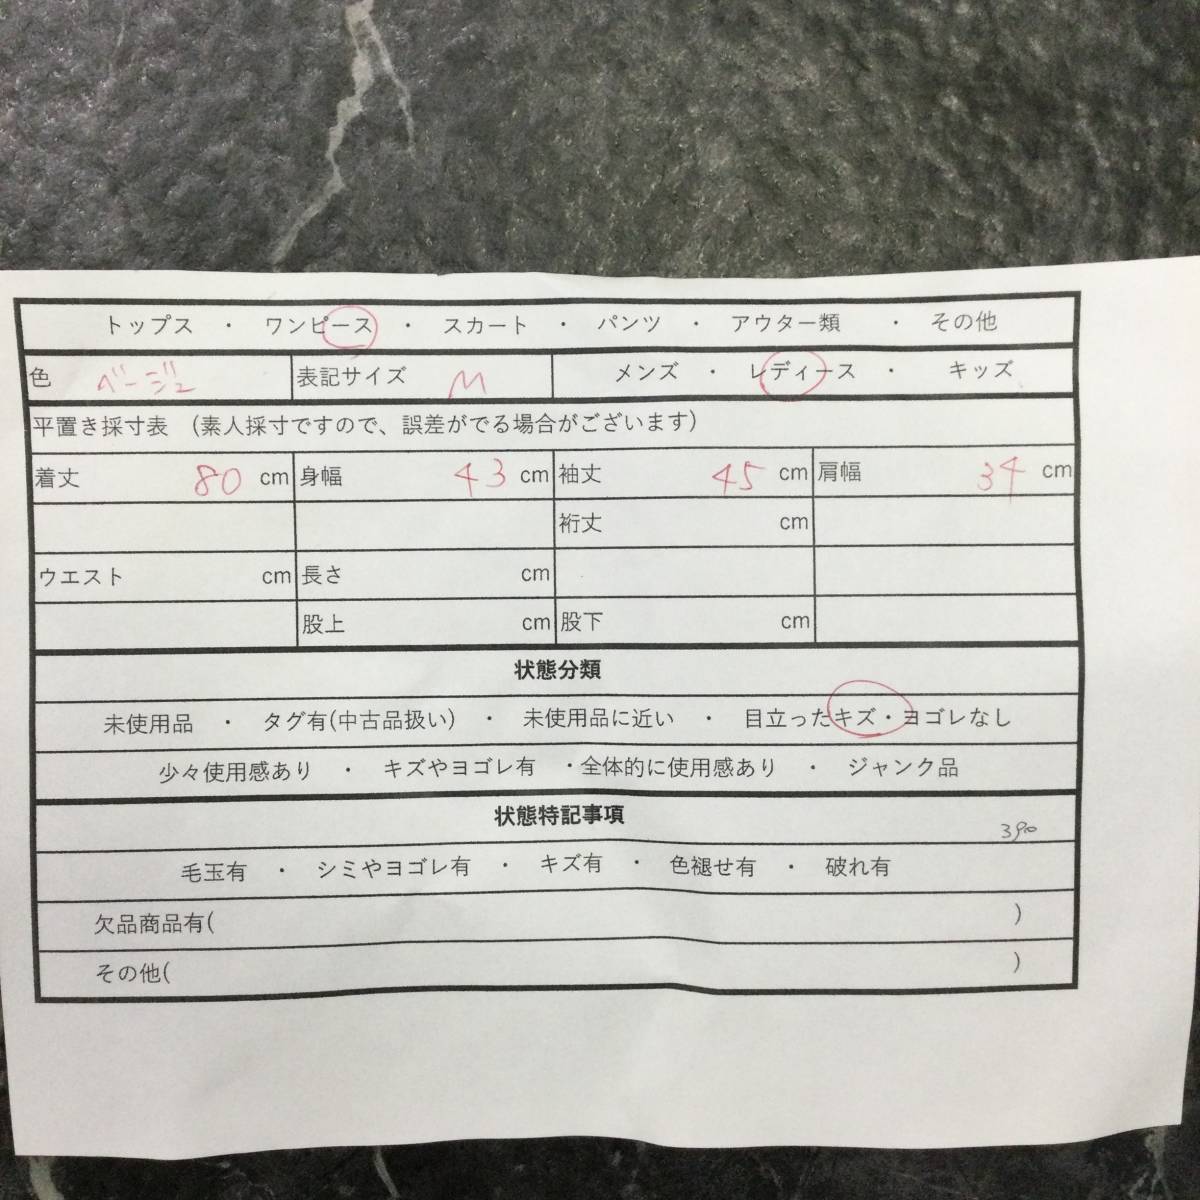 トップス ・ ワンピース ・ スカート ・ パンツ ・ アウター類 ・ その他
色 ベージュ 表記サイズ M メンズ ・ レディース ・ キッズ
平置き採寸表 (素人採寸ですので、誤差がでる場合がございます)
着丈 80 cm 身幅 43 cm 袖丈 45 cm 肩幅 34 cm
裄丈 cm
ウエスト cm 長さ cm
股上 cm 股下 cm
状態分類
未使用品 ・ タグ有(中古品扱い) ・ 未使用品に近い ・ 目立ったキズ・ヨゴレなし
少々使用感あり ・ キズやヨゴレ有 ・全体的に使用感あり ・ ジャンク品
状態特記事項
390
毛玉有 ・ シミやヨゴレ有 ・ キズ有 ・ 色褪せ有 ・ 破れ有
欠品商品有( )
その他( )